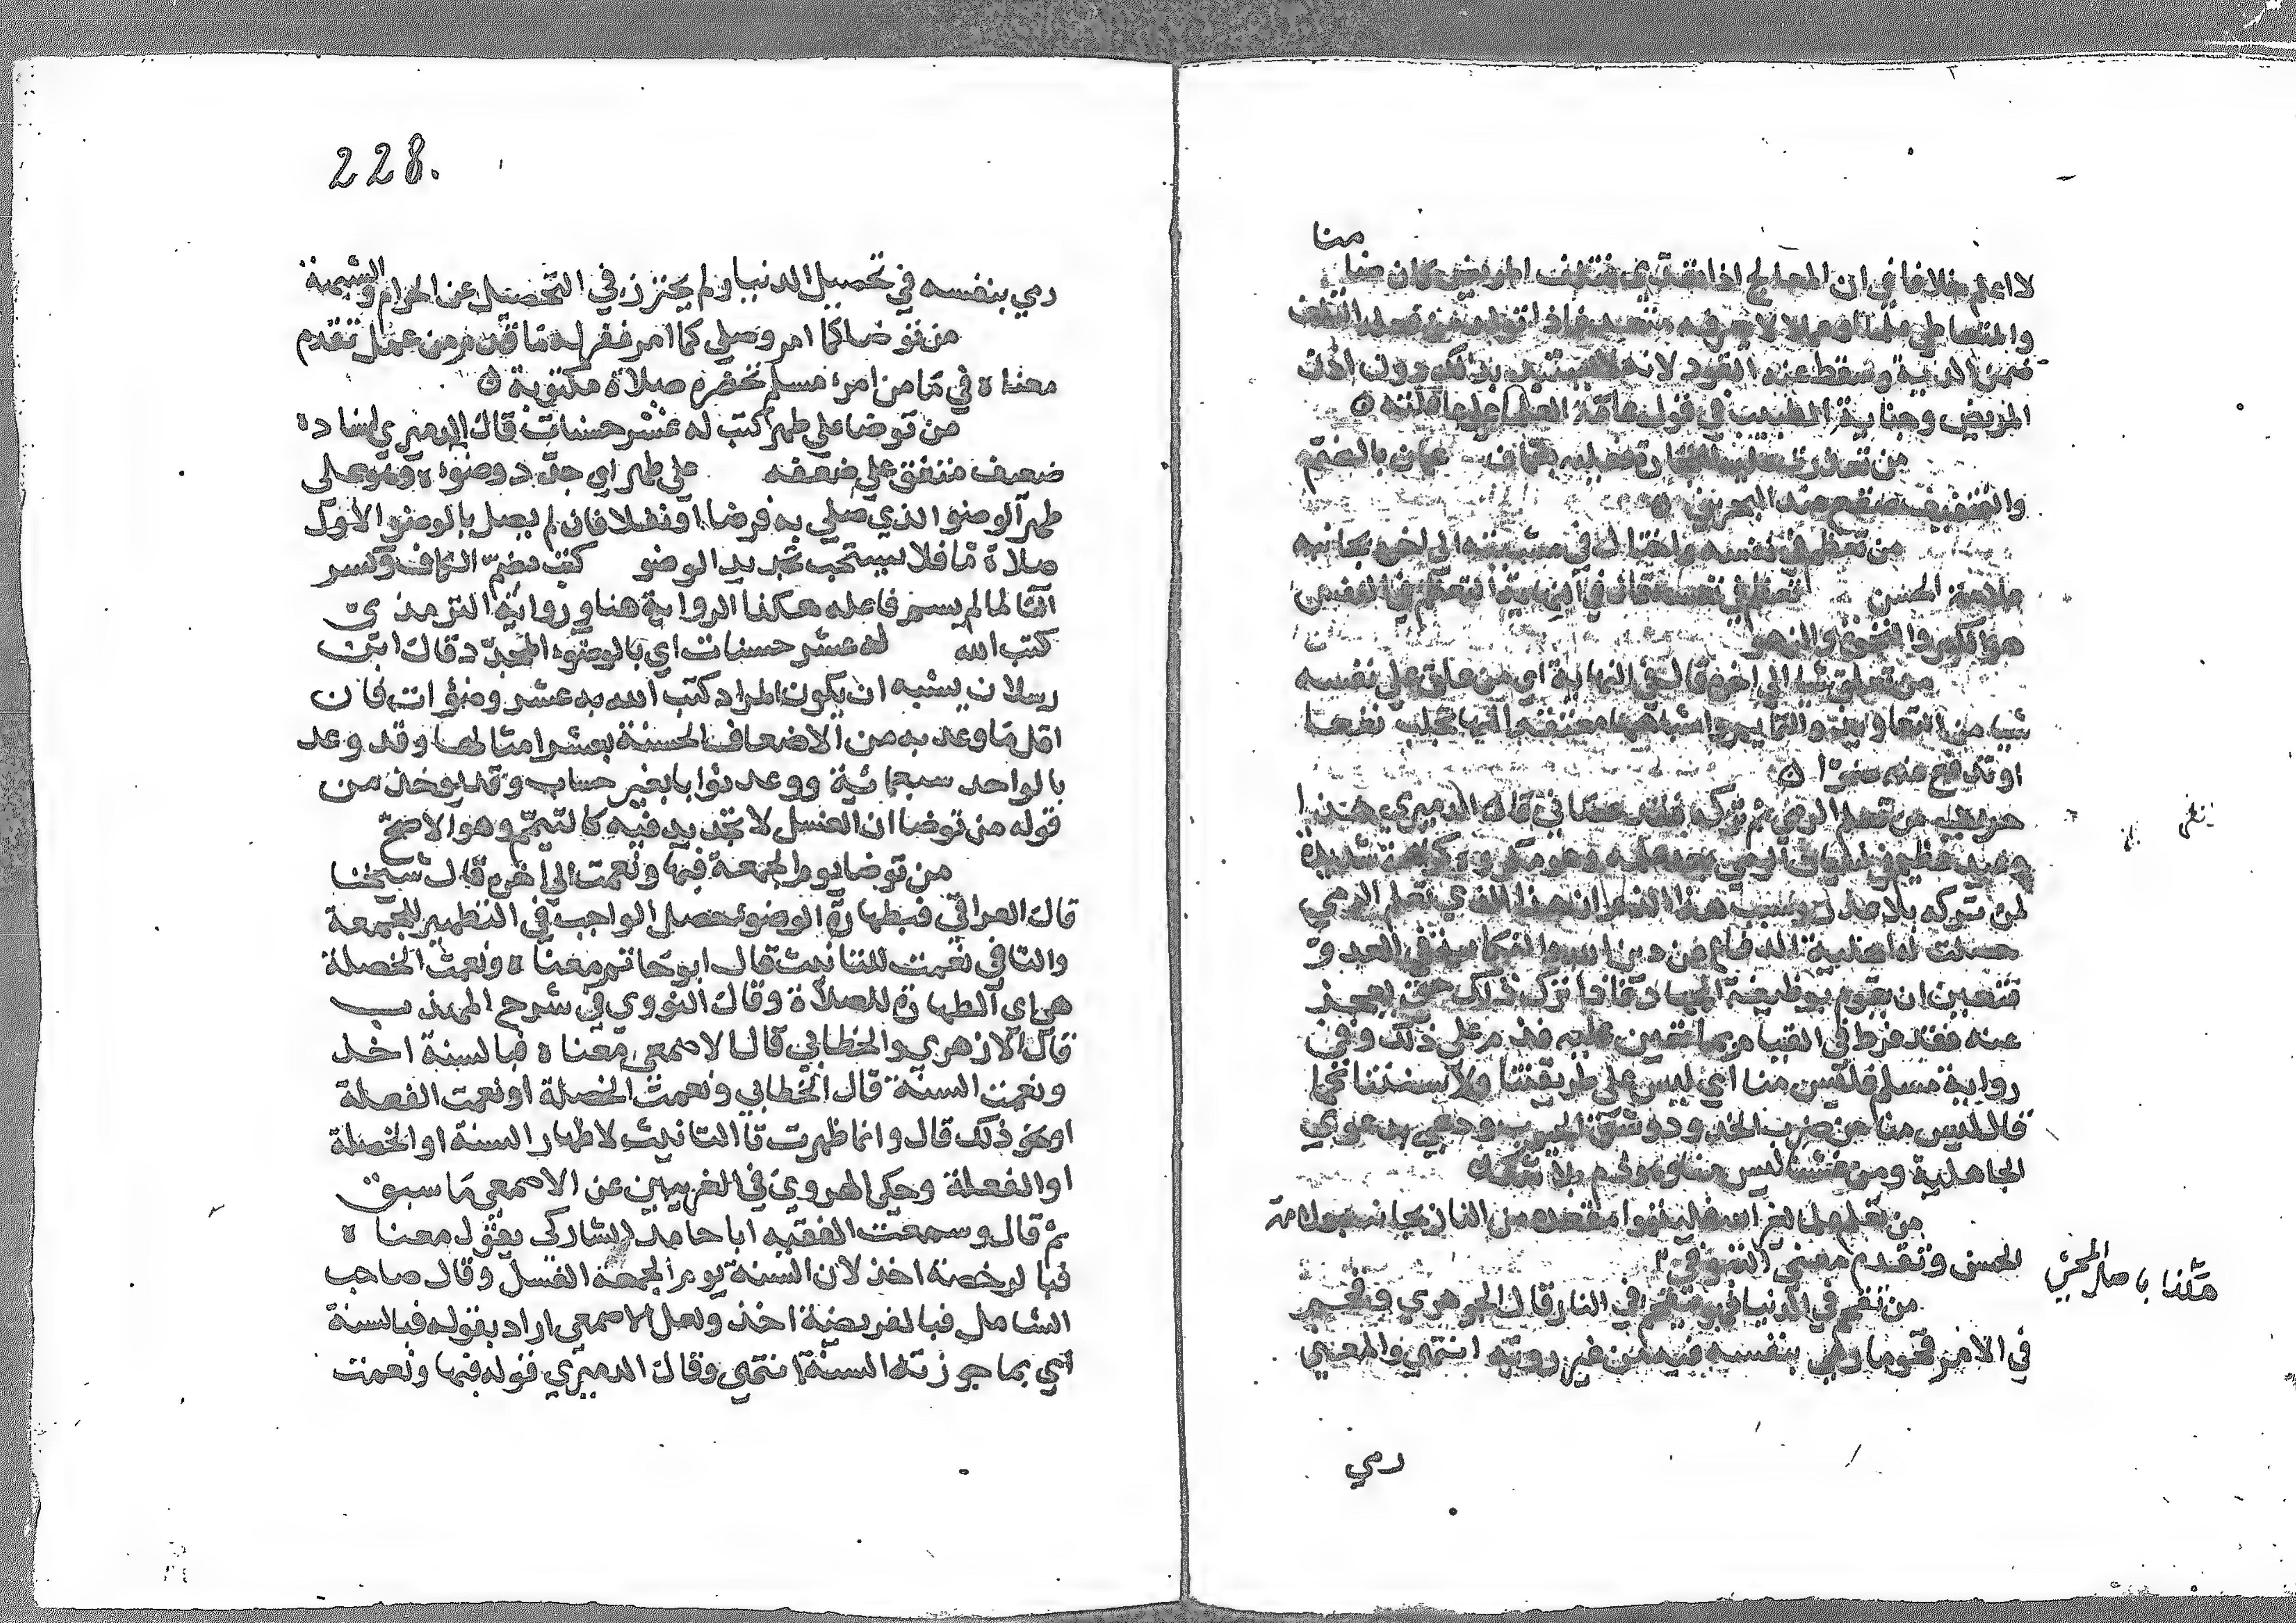 منا
لا اعلم خلافا في ان المعالج اذا تعدى فتلف المريض كان ضا
والمتعاطي علما او عملا لا يعرفه متعد فاذا تولد من فعله التلف
ضمن الدية وسقط عنه القود لانه لا يستبد بذلك دون اذن
المريض وجناية الطبيب في قول عامة العلما على عاقلته
من تعذرت عليه التجارة فعليه بعمان عمان بالضم
والتخفيف صقع عند البحرين
من تعظم في نفسه واختال في مشيته الى اخره بجانبه
علامة الحسن تعظم في نفسه قال في
هو الكبر والنخوة والزهو
من تعلق شيا الى اخره قال في النهاية اي من علق على نفسه
شيا من التعاويذ والتمايم واشباهها معتقدا انها تجلب نفعا
او تدفع عنه ضرا
حديث من تعلم الرمي ثم تركه فقد عصاني قال الدميري هذا
وعيد عظيم في نسيان الرمي بعد علمه وهو مكروه كراهة شديدة
لمن تركه بلا عذر وسبب هذا الذم ان هذا الذي تعلم الرمي
حصلت له اهلية الدفاع عن دين الله والنكاية في العدو
فتعين ان يقوم بوظيفة الجهاد فاذا ترك ذلك حتى يعجز
عنه فقد فرط في القيام بما تعين عليه فذم على ذلك وفي
رواية مسلم فليس منا اي ليس على طريقتنا ولا سنتنا كما
قال ليس منا من ضرب الخدود وشق الجيوب ودعى بدعوى
الجاهلية ومن غشنا ليس منا وهو ذم بلا شك
من تعلم علما لغير الله فليتبوا مقعده من النار بجانبه علامة
الحسن وتقدم معنى التبوء في
من تقحم في الدنيا فهو يتقحم في النار قال الجوهري قحم
في الامر قحوما رمى بنفسه فيه من غير روية انتهى والمعنى
رمي
هكذا باصل المحشي
228.
رمي بنفسه في تحصيل الدنيا ولم يحترز في التحصيل عن الحرام والشبهة
من توضا كما امر وصلى كما امر غفر له ما قدم من عمل تقدم
معناه في ما من امرء مسلم تحضره صلاة مكتوبة
من توضا على طهر كتب له عشر حسنات قال الدميري اسناده
ضعيف متفق على ضعفه على طهر اي جدد وضوءه وهو على
طهر الوضو الذي صلى به فرضا او نفلا فان لم يصل بالوضو الاول
صلاة ما فلا يستحب تجديد الوضو كتب بضم الكاف وكسر
التا لما لم يسم فاعله هكذا الرواية هنا ورواية الترمذي
كتب الله له عشر حسنات اي بالوضوء المجدد قال ابن
رسلان يشبه ان يكون المراد كتب الله به عشر وضوءات فان
اقل ما وعد به من الاضعاف الحسنة بعشر امثالها وقد وعد
بالواحد سبعمائية ووعد ثوابا بغير حساب وقد يوخذ من
قوله من توضا ان الغسل لا تجديد فيه كالتيمم وهو الاصح
من توضا يوم الجمعة فبها ونعمت الى اخره قال شيخنا
قال العراقي فبطهارة الوضوء حصل الواجب في التطهير للجمعة
والتا في نعمت للتانيث قال ابو حاتم معناه ونعمت الخصلة
هي اي الطهارة للصلاة وقال النووي في شرح المهذب
قال الازهري والخطابي قال الاصمعي معناه فبالسنة اخذ
ونعمت السنة قال الخطابي ونعمت الخصلة او نعمت الفعلة
او نحو ذلك قال وانما ظهرت تا التانيث لاظهار السنة او الخصلة
او الفعلة وحكى الهروي في الغريبين عن الاصمعي ما سبق
ثم قال وسمعت الفقيه ابا حامد الشاركي يقول معناه
فبالرخصة اخذ لان السنة يوم الجمعة الغسل وقال صاحب
الشامل فبالفريضة اخذ ولعل الاصمعي اراد بقوله فبالسنة
اي بما جوزته السنة انتهى وقال الدميري قوله فبها ونعمت